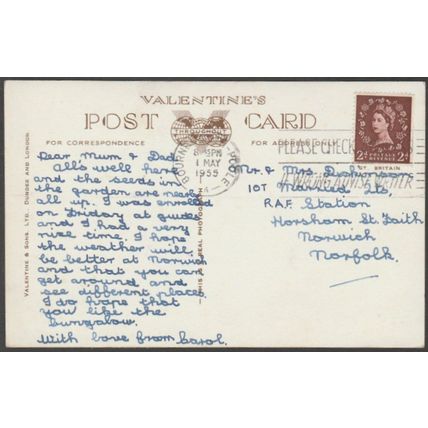 VALENTINE'S
POST CARD
FOR CORRESPONDENCE
FOR ADDRESS ONLY
THROUGHOUT
VALENTINE & SONS. LTD. DUNDEE AND LONDON.
THIS IS A REAL PHOTOGRAPH
PM
1 MAY
1955
POOLE
PLEASE CHECK
2d POSTAGE REVENUE 2d
Dear Mum & Dad,
All's well here
and the seeds in
the garden are nearly
all up. I was enrolled
on Friday at guides
and I had a very
nice time. I hope
the weather will
be better at Norwich
and that you can
get around and
see different places
I do hope that
you like the
bungalow.
With love from Carol.
Mr. & Mrs.
107 Married Qts,
R.A.F. Station
Horsham St. Faith
Norwich
Norfolk.